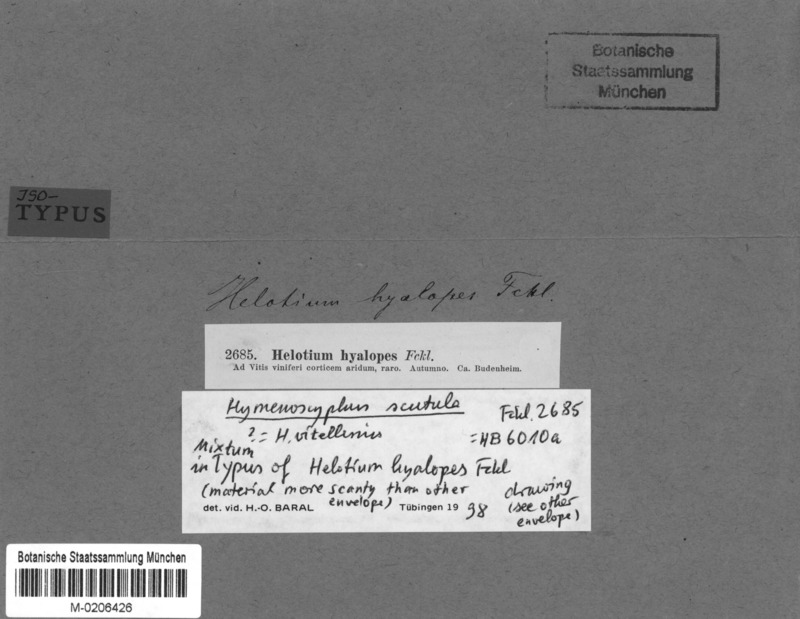 Botanische
Staatssammlung
München
ISO-
TYPUS
Helotium hyalopes Fckl.
2685. Helotium hyalopes Fckl.
Ad Vitis viniferi corticem aridum, raro. Autumno. Ca. Budenheim.
Hymenoscyphus scutula Fckl. 2685
?= H. vitellinus = HB 6010a
Mixtum
in Typus of Helotium hyalopes Fckl
(material more scanty than other envelope)
drawing
(see other
envelope)
det. vid. H.-O. BARAL Tübingen 19 98
Botanische Staatssammlung München
M-0206426